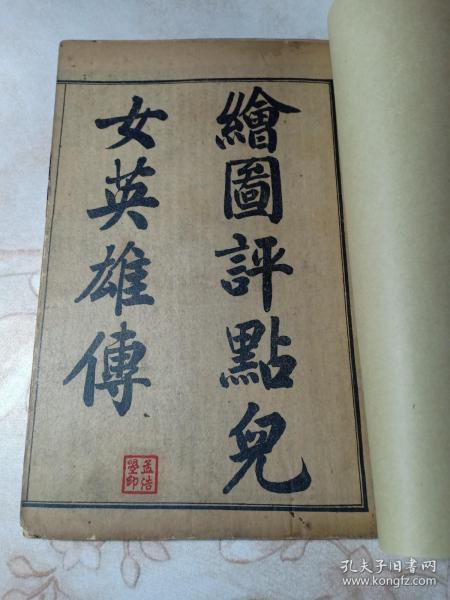 繪圖評點兒
女英雄傳
孔夫子旧书网
www.kongfz.com